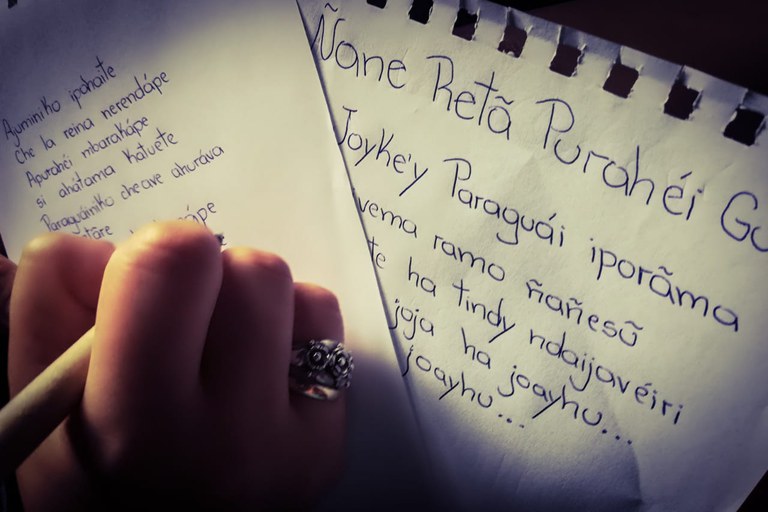 Ajuminiko ipahaite
che la reina nerendápe
Apurahéi mbarakápe
si ahátama katuete
Paraguáiniko che ave ahuráva
Ñane Retã Purahéi Gu
Joyke'y Paraguái iporãma
ivema ramo ñañesũ
te ha tindy ndaijavéiri
joja ha joayhu...
joayhu...